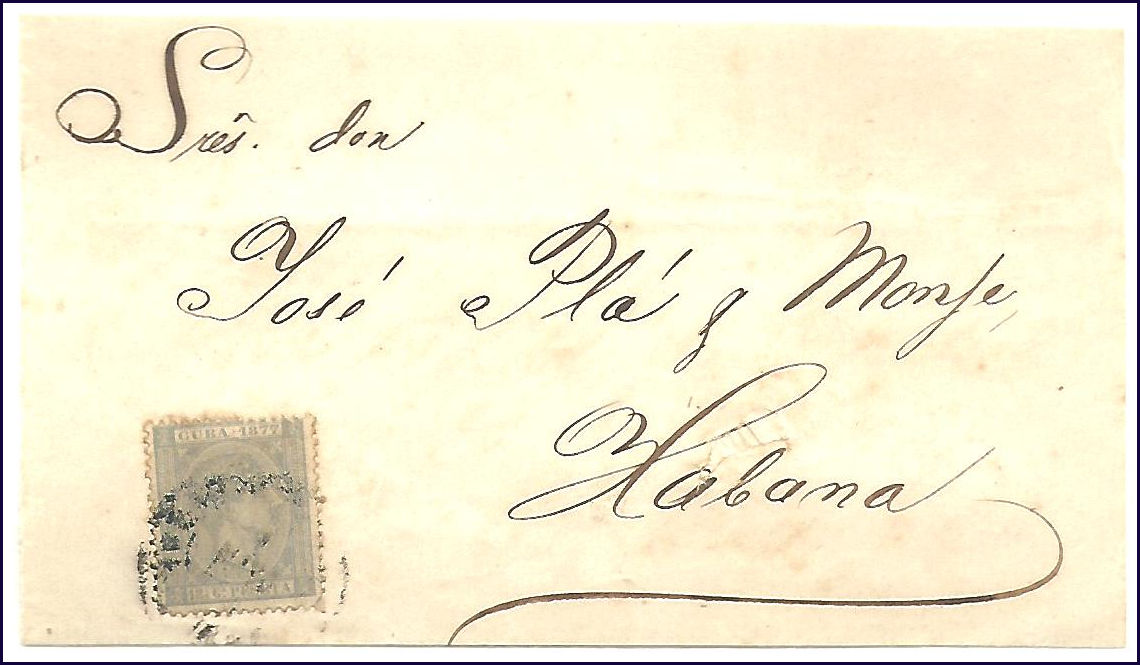 Srês. don
José Plá y Monje,
Habana
CUBA 1877
12 C. PESETA